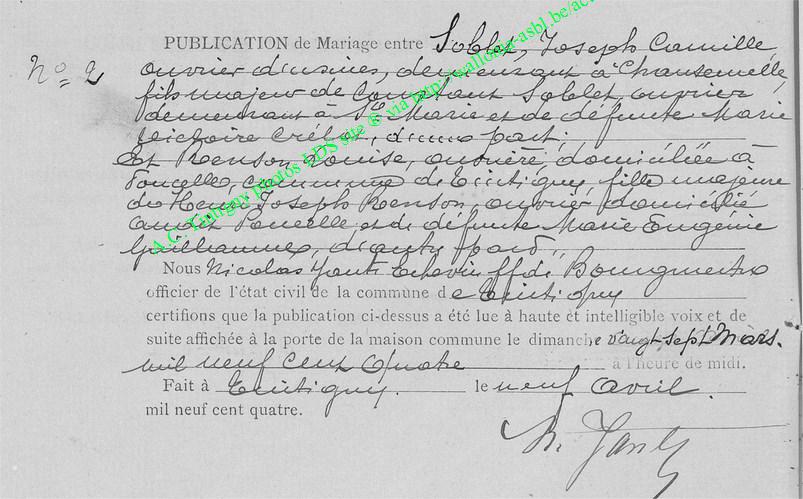 Nº 2
PUBLICATION de Mariage entre Soblet, Joseph Camille,
ouvrier d'usines, demeurant à Chantemelle,
fils majeur de Constant Soblet, ouvrier
demeurant à Ste Marie et de défunte Marie
Victoire d'une part;
Et Renson Louise, ouvrière, domiciliée à
Poncelle, commune de Tintigny, fille majeure
de Henri Joseph Renson, ouvrier domicilié
audit Poncelle et de défunte Marie Eugénie
Guillaume, d'autre part.
Nous Nicolas Echevin ff de Bourgmestre
officier de l'état civil de la commune de Tintigny
certifions que la publication ci-dessus a été lue à haute et intelligible voix et de
suite affichée à la porte de la maison commune le dimanche vingt sept Mars
mil neuf cent quatre à l'heure de midi.
Fait à Tintigny le neuf avril
mil neuf cent quatre.
A.C. Tintigny photos LDS site ® via http://wallonia-asbl.be/ac